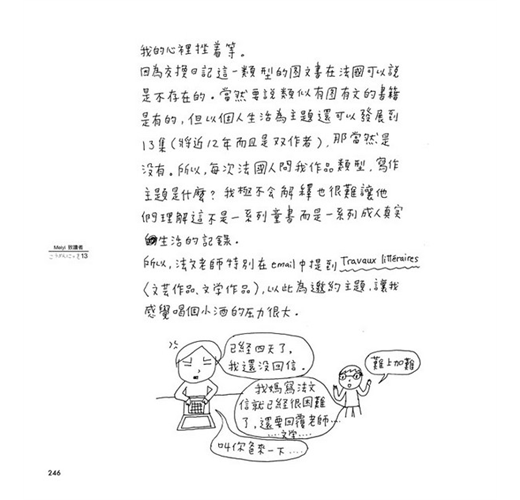 我的心裡挫著等。
因為交換日記這一類型的圖文書在法國可以說
是不存在的。當然要說類似有圖有文的書籍
是有的，但以個人生活為主題還可以發展到
13集(將近12年而且是双作者)，那當然是
沒有。所以，每次法國人問我作品類型，寫作
主題是什麼？我極不會解釋也很難讓他
們理解這不是一系列童書而是一系列成人真实
生活的記錄。
所以，法文老師特別在email中提到 Travaux littéraires
(文芸作品、文学作品)，以此為邀約主題，讓我
感覺喝個小酒的压力很大。
Meiyi 張讀者
13
已經四天了，
我還沒回信。
難上加難
我媽寫法文
信就已經很困難
了，還要回覆老師…
……文学……
叫你爸來一下……
246